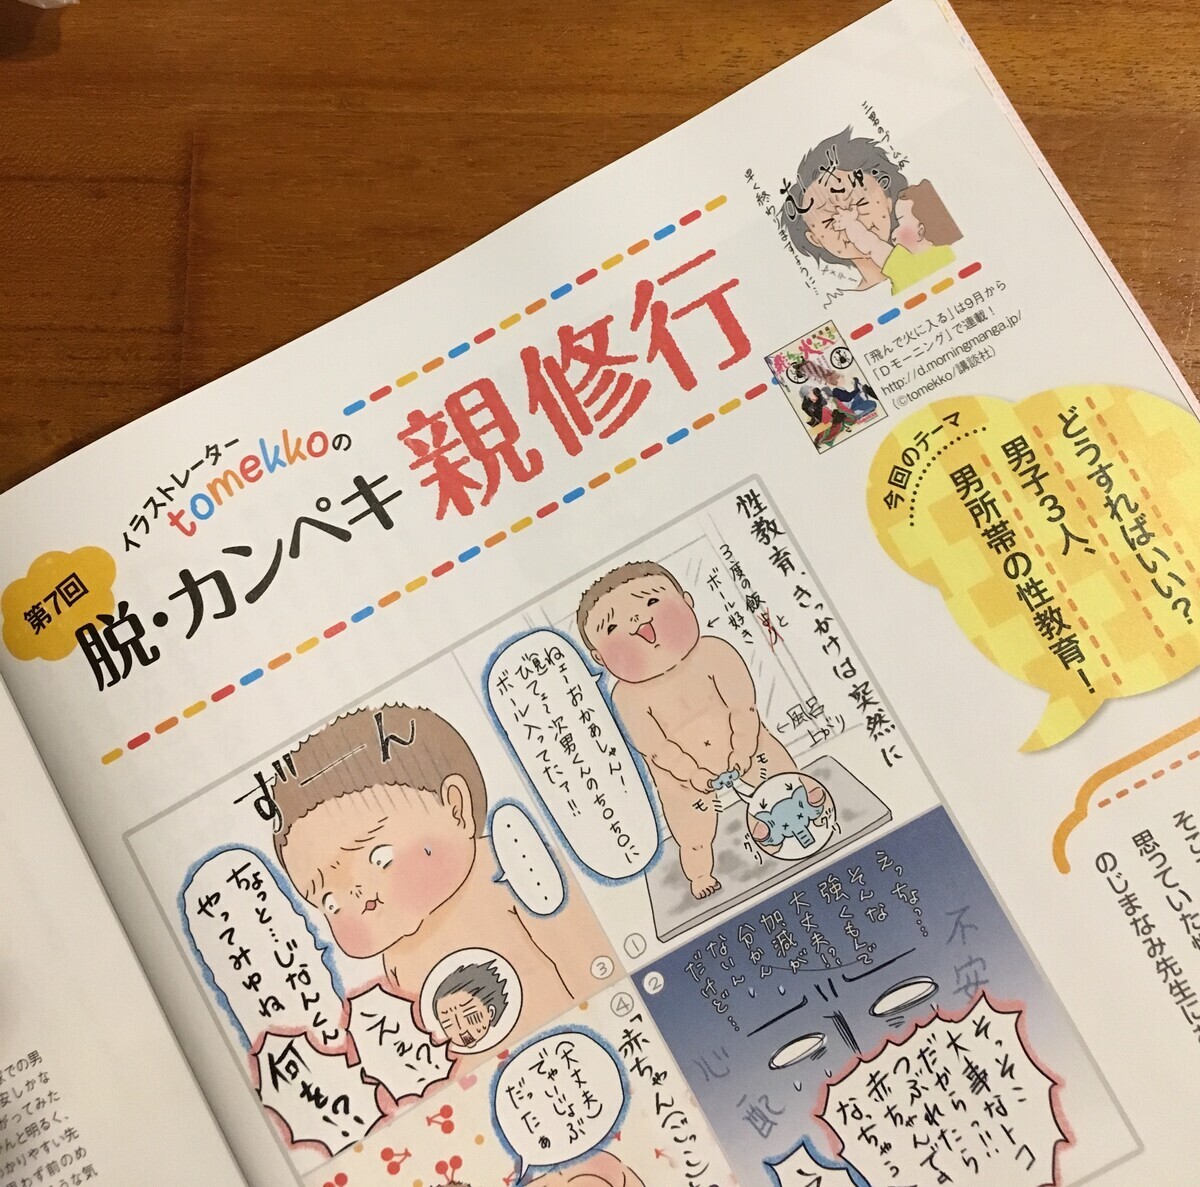 第7回
イラストレーター
tomekkoの
脱・カンペキ
親修行
三男のブームが
早く終わりますように…
むぎゅう!!
「飛んで火に入る」は9月から
「Dモーニング」で連載！
http://d.morningmanga.jp/
(©tomekko/講談社)
今回のテーマ
どうすればいい？
男子3人、
男所帯の性教育！
性教育、きっかけは突然に
3度の飯と
ボール好き
←風呂
上がり
ねェーおかあしゃん！
見てェ〜次男くんのち〇ち〇に
ボール入ってたァ!!
モミ
モミ
グリ
グリ
①
②
えっちょっ…
そんな
強くもんで
大丈夫!?
加減が
分かん
ないん
だけど…
不安
心配
そっそこ
大事なトコ
だから…!!
つぶれたら
赤ちゃんです
なっちゃう
③
ずーん
・・・・
ちょっと…じなんくん
やってみゆね
えぇ!?
何を!?
④
「赤ちゃん(ごっこ
(大丈夫)
でゃいじょぶ
だったぁ
え
思っていた
のじまなみ先生に
での男
安しかな
がってみた
んと明るく、
かりやすい先
わず前のめ
うな気